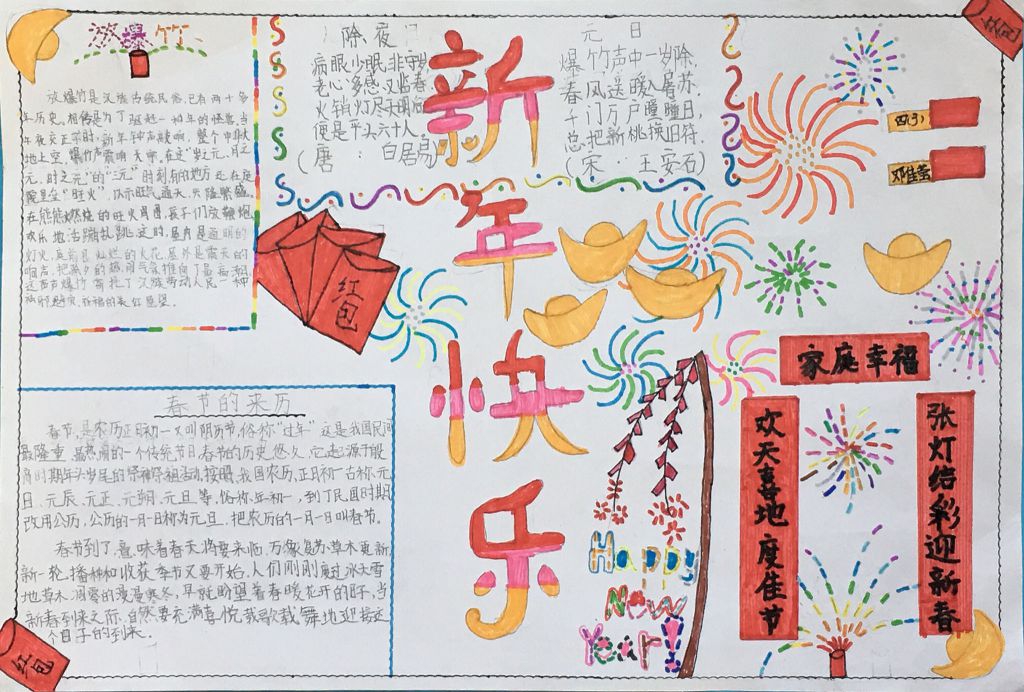 放爆竹
放爆竹是汉族传统民俗,已有两千多
年历史。相传是为了驱赶一种年的怪兽,当
年夜交正子时,新年钟声敲响,整个中华大
地上空,爆竹声震响天宇。在这"岁之元、月之
元、时之元"的"三元"时刻,有的地方还在庭
院里垒"旺火",以示旺气通天,兴隆繁盛。
在熊熊燃烧的旺火周围,孩子们放鞭炮,
欢乐地活蹦乱跳,这时,屋内是通明的
灯火,庭前是灿烂的火花,屋外是震天的
响声,把除夕的热闹气氛推向了最高潮。
春节的来历
春节,是农历正月初一又叫阴历节,俗称"过年"这是我国民间
最隆重、最热闹的一个传统节日。春节的历史悠久,它起源于殷
商时期年头岁尾的祭神祭祖活动。按照我国农历,正月初一古称元
日、元辰、元正、元朔、元旦等,俗称年初一,到了民国时期
改用公历,公历的一月一日称为元旦,把农历的一月一日叫春节。
春节到了,意味着春天将要来临,万象复苏草木更新,
新一轮播种和收获季节又要开始。人们刚刚度过冰天雪
地草木凋零的漫漫寒冬,早就盼望着春暖花开的日子,当
新春到来之际,自然要充满喜悦载歌载舞地迎接这
个日子的到来。
除夜
病眼少眠非守岁
老心多感又临春
火销灯尽天明后
便是平头六十人
(唐:白居易)
元日
爆竹声中一岁除,
春风送暖入屠苏,
千门万户曈曈日,
总把新桃换旧符。
(宋:王安石)
新
年
快
乐
红包
红包
红包
四3)
邓佳
家庭幸福
欢天喜地度佳节
张灯结彩迎新春
Happy
New
Year!